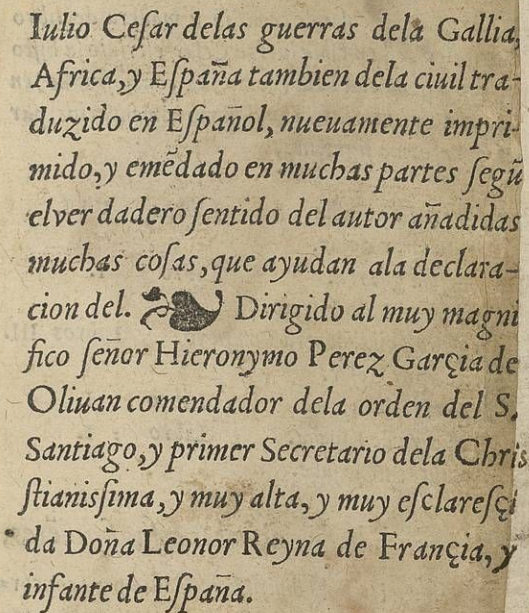 Iulio Ceſar delas guerras dela Gallia,
Africa,y Eſpaña tambien dela ciuil tra-
duzido en Eſpañol, nueuamente impri-
mido,y emẽdado en muchas partes ſegũ
elver dadero ſentido del autor añadidas
muchas coſas,que ayudan ala declara-
cion del. ❧ Dirigido al muy magni
fico ſeñor Hieronymo Perez Garçia de
Oliuan comendador dela orden del S.
Santiago,y primer Secretario dela Chri
ſtianisſima,y muy alta,y muy eſclareſçi
da Doña Leonor Reyna de Françia, y
infante de Eſpaña.